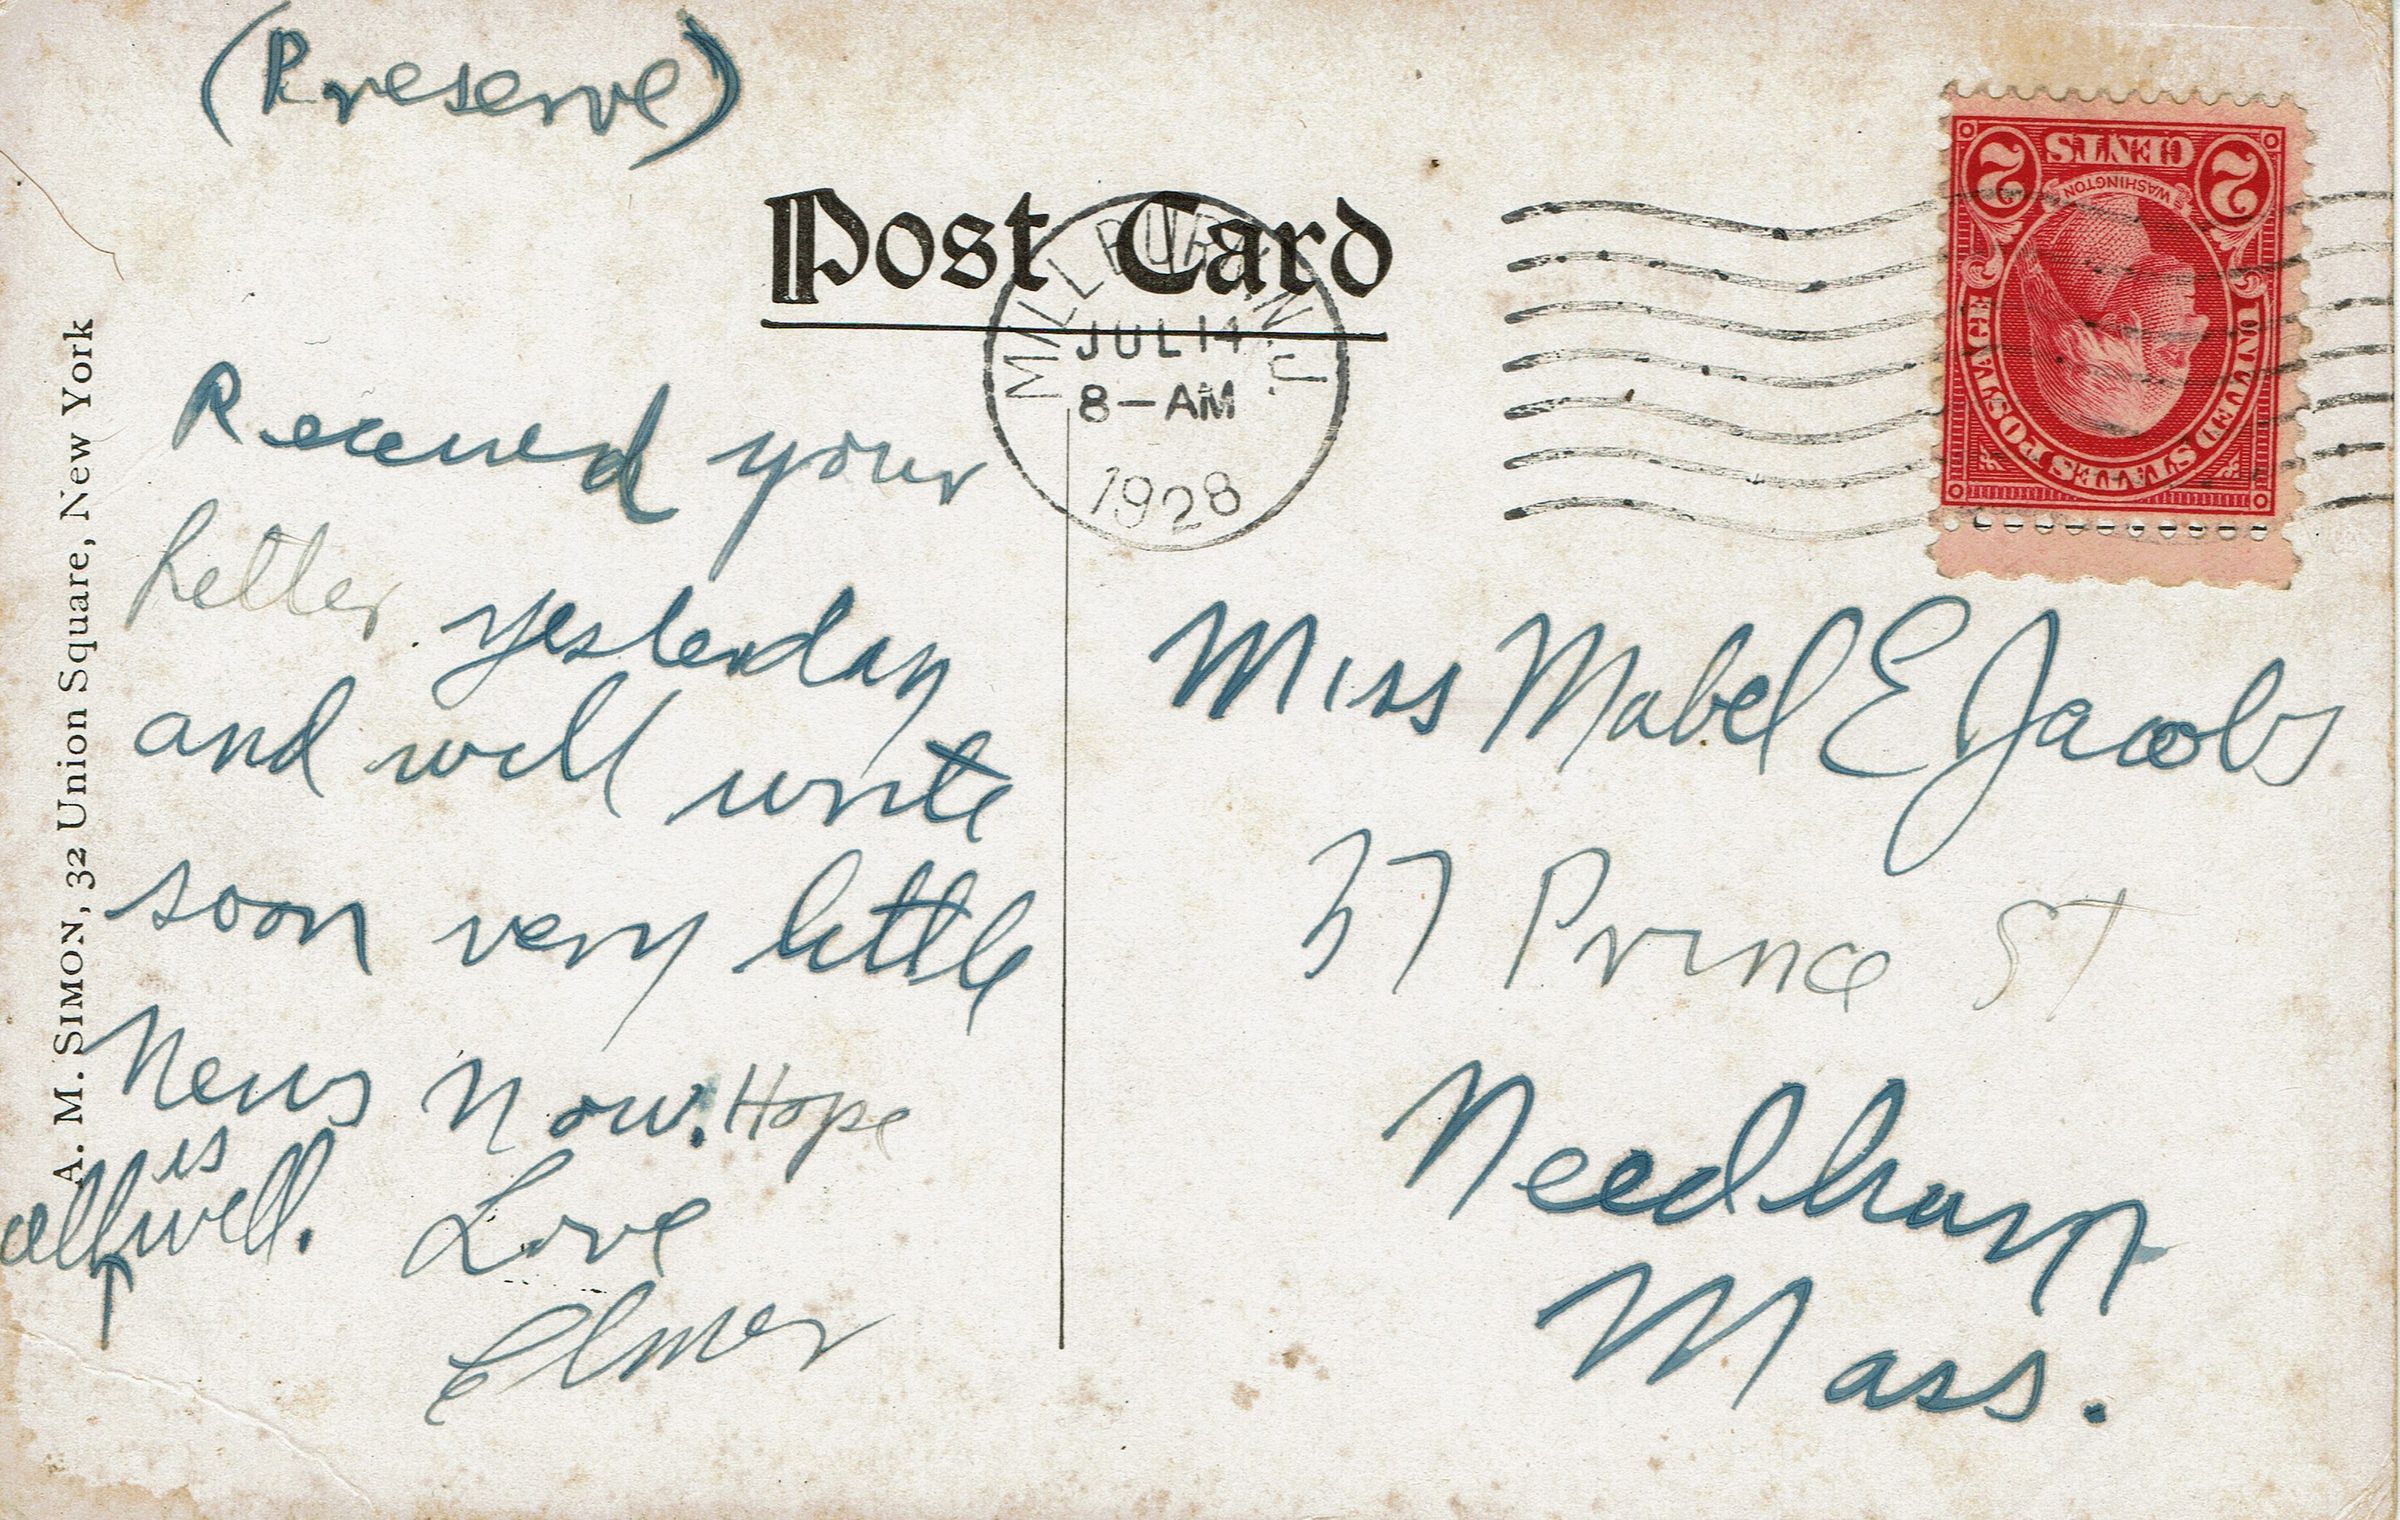 (Preserve)
Post Card
MILLBURN N.J.
JUL 14
8-AM
1928
CENTS
2 2
WASHINGTON
UNITED STATES POSTAGE
A. M. SIMON, 32 Union Square, New York
Received your
letter yesterday
and will write
soon very little
News Now. Hope
all is well.
Love
Elmer
Miss Mabel E Jacobs
37 Prince St
Needham
Mass.